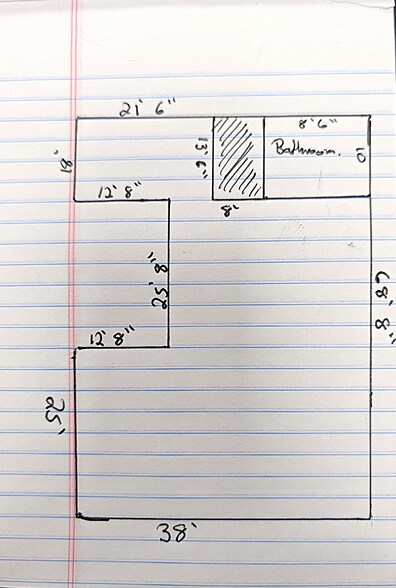 21' 6"
8' 6"
Bathroom.
10
13' 6"
18'
12' 8"
8'
25' 8"
68' 8"
12' 8"
25'
38'